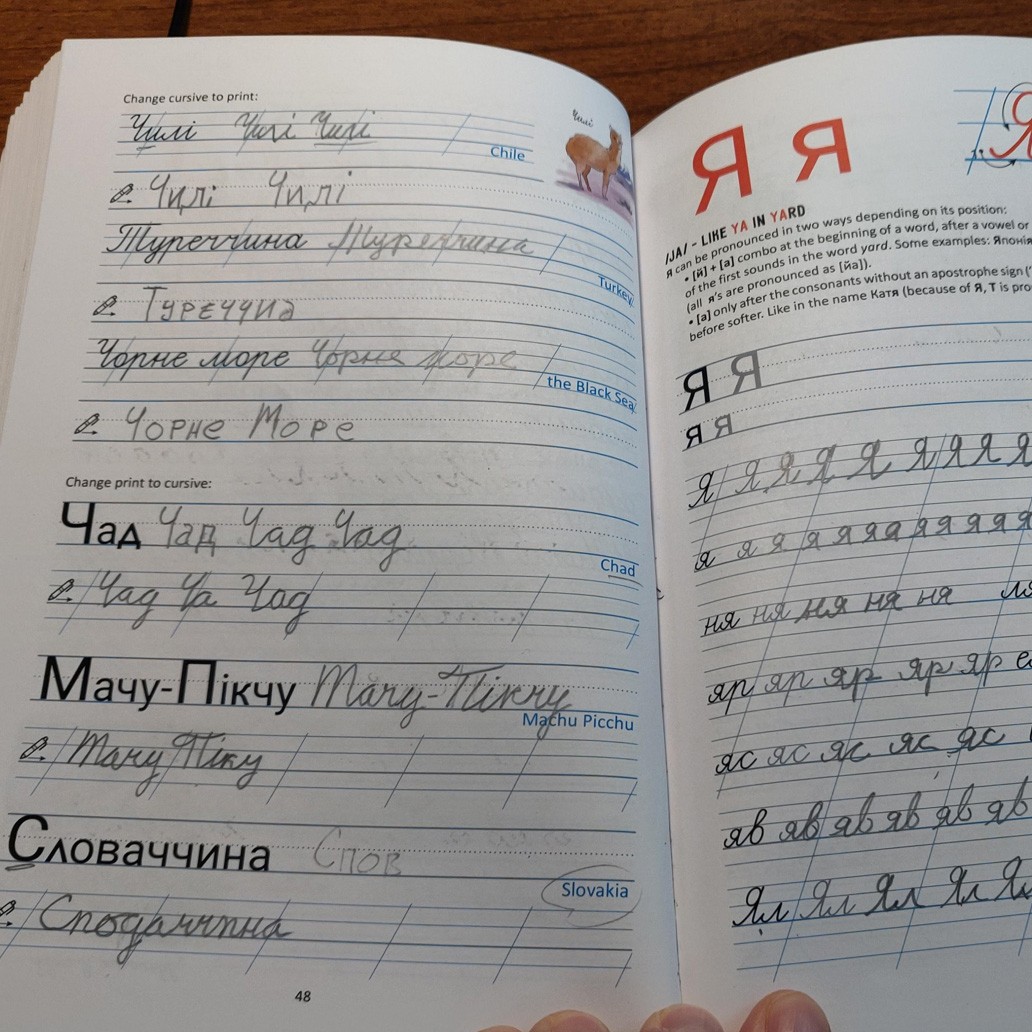 Change cursive to print:
Чилі Чилі Чилі
Чилі
Chile
Чилі Чилі
Туреччина Туреччина
Turkey
Туреччина
Чорне море Чорне море
the Black Sea
Чорне Море
Change print to cursive:
Чад Чад Чад Чад
Chad
Чад Ча Чад
Мачу-Пікчу Мачу-Пікчу
Machu Picchu
Мачу Піку
Словаччина Спов
Slovakia
48
Я я
/JA/ - LIKE YA IN YARD
Я can be pronounced in two ways depending on its position:
• [й] + [а] combo at the beginning of a word, after a vowel or
of the first sounds in the word yard. Some examples:
(all я's are pronounced as [йа]).
• [а] only after the consonants without an apostrophe sign
before softer. Like in the name Катя (because of Я, Т is
Я Я
я я
Я Я Я Я Я Я Я Я Я
я я я я я я я я я я я
ня ня ня ня ня
яр яр яр яр яр
яс яс яс яс яс
яв яв яв яв яв яв
Ял Ял Ял Ял